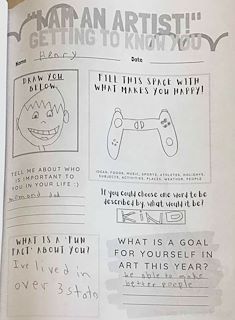 "I AM AN ARTIST!"
GETTING TO KNOW YOU
Name Henry Date
DRAW YOU
BELOW.
FILL THIS SPACE WITH
WHAT MAKES YOU HAPPY!
IDEAS, FOODS, MUSIC, SPORTS, ATHLETES, HOLIDAYS,
SUBJECTS, ACTIVITIES, PLACES, WEATHER, PEOPLE
TELL ME ABOUT WHO
IS IMPORTANT TO
YOU IN YOUR LIFE :)
mom and dad
If you could choose one word to be
described by, what would it be?
KIND
WHAT IS A "FUN
FACT" ABOUT YOU?
I've lived in
over 3 states
WHAT IS A GOAL
FOR YOURSELF IN
ART THIS YEAR?
be able to make
better people